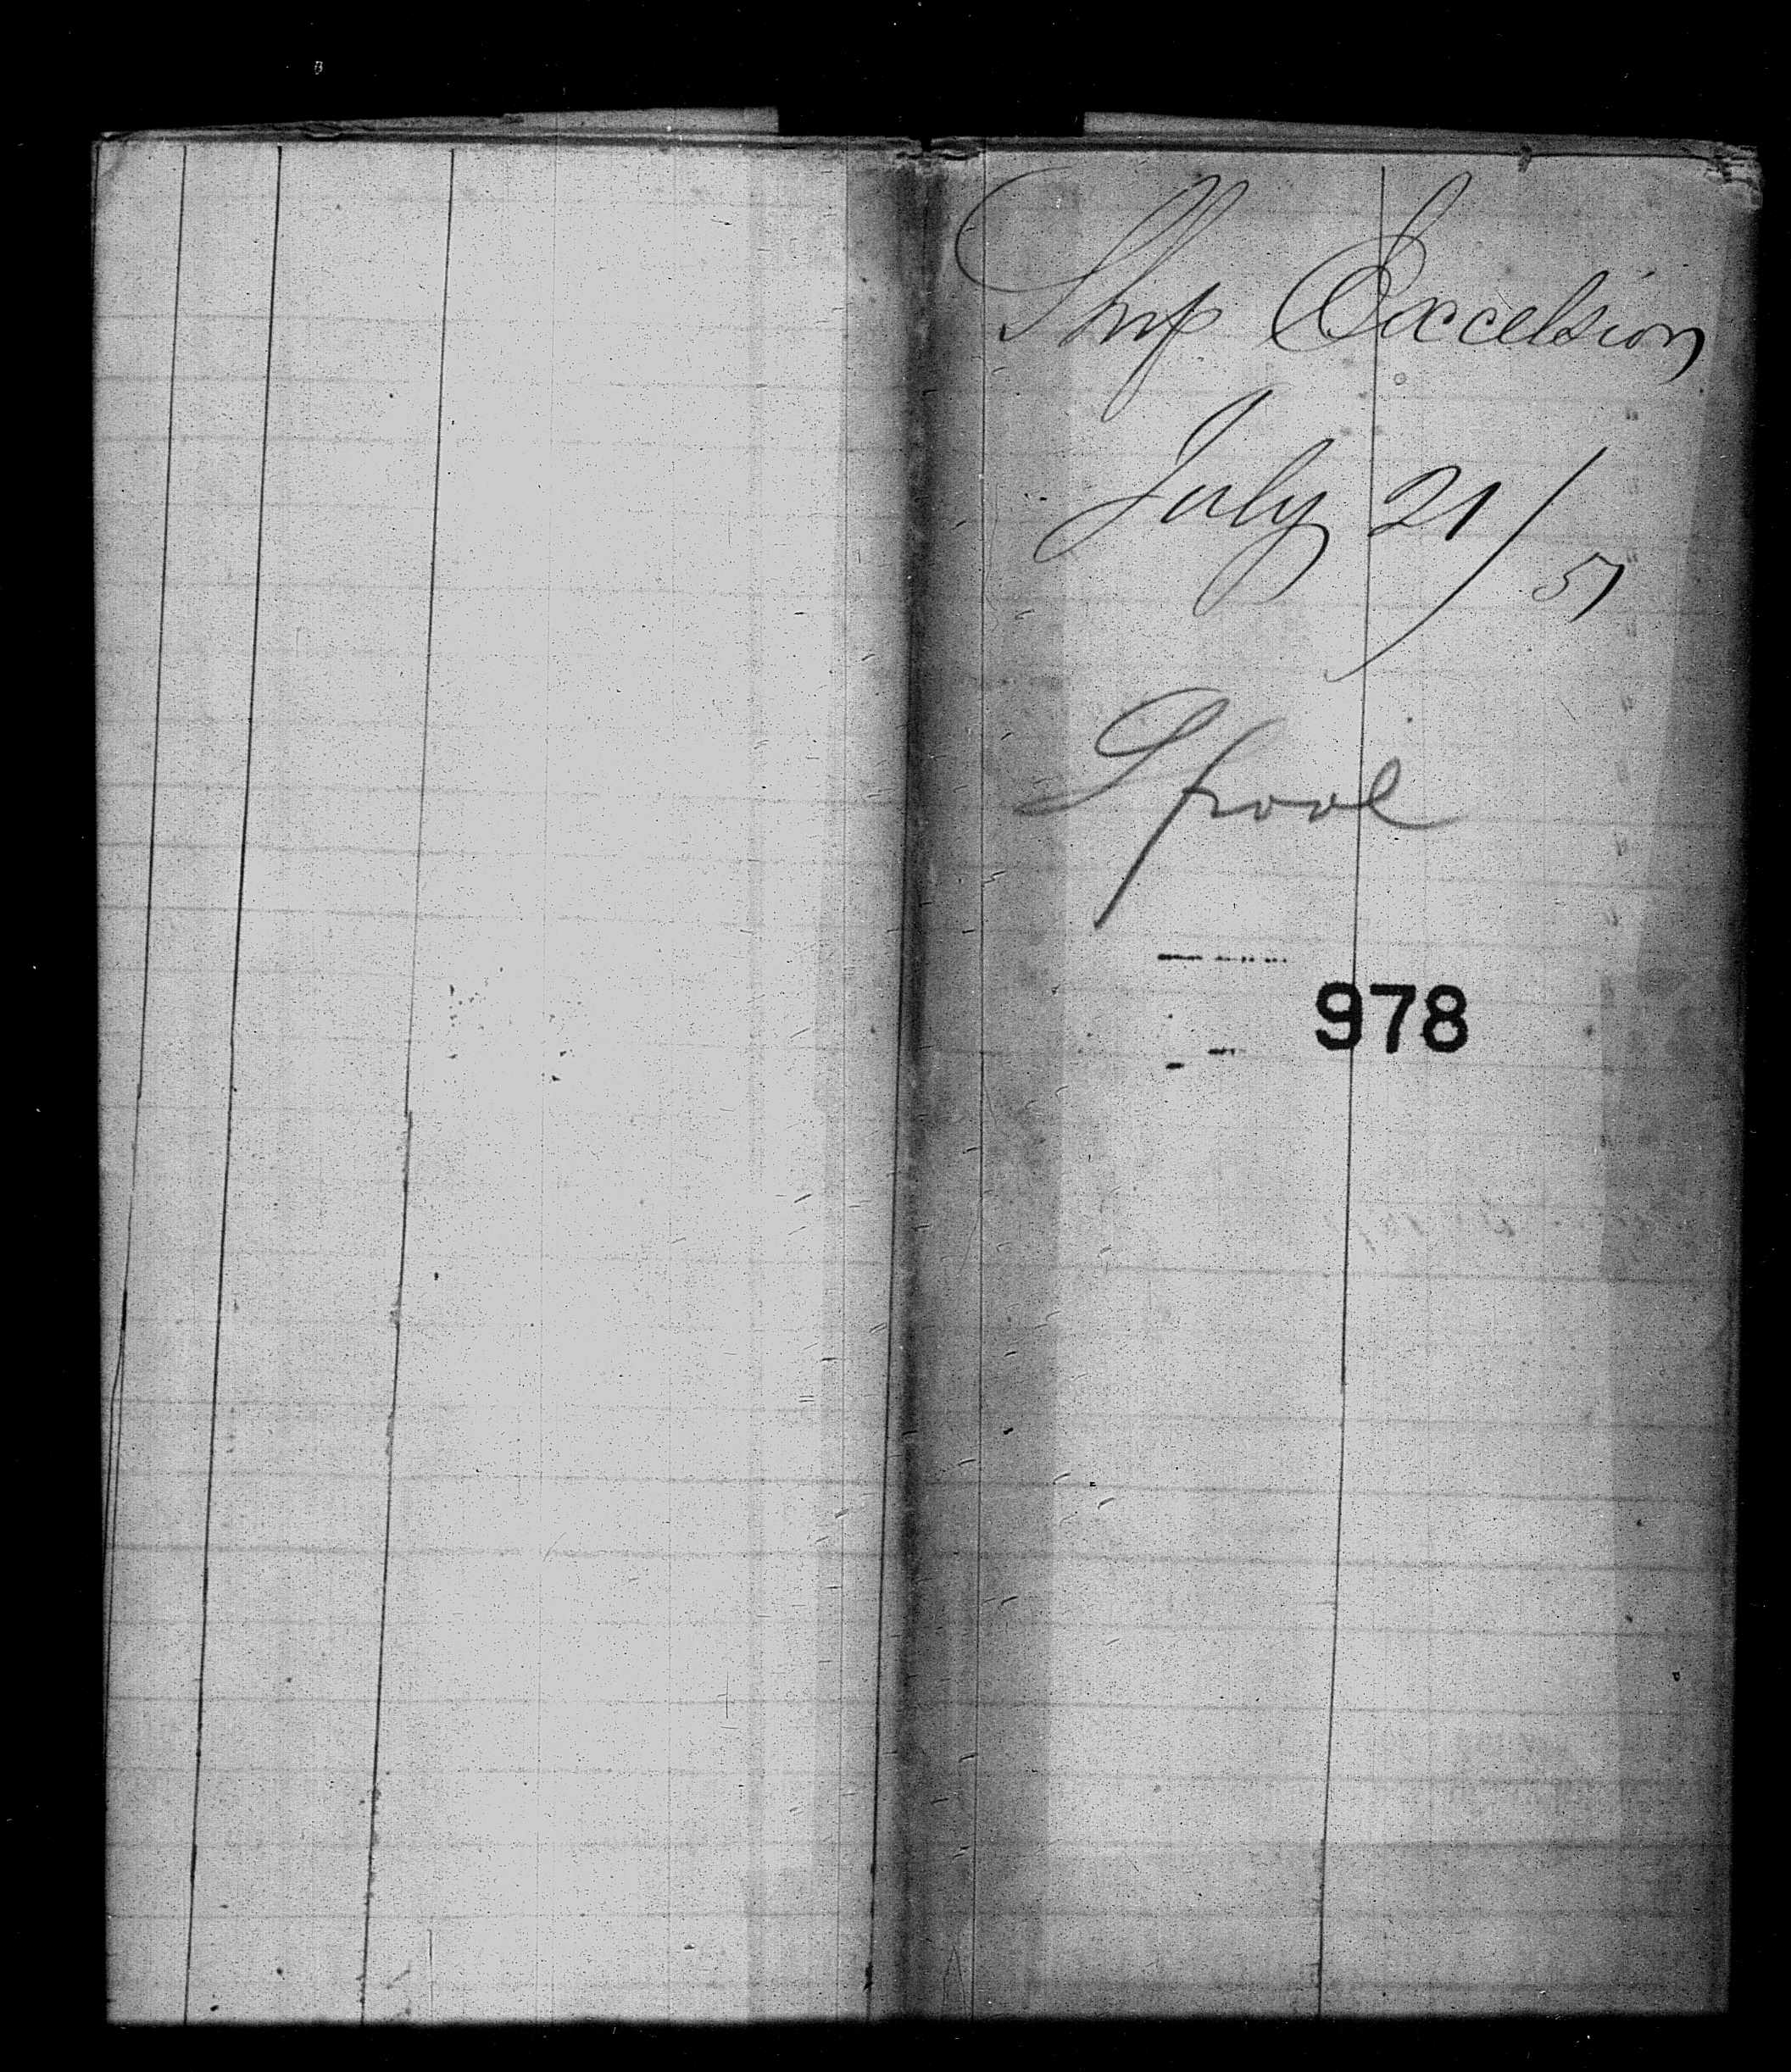 Ship Excelsior
July 21/57
Lpool
978